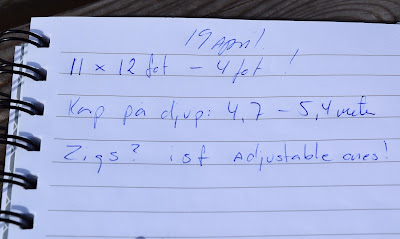 19 april!
11 x 12 fot - 4 fot !
Karp på djup: 4,7 - 5,4 meter
Zigs? ist Adjustable ones!